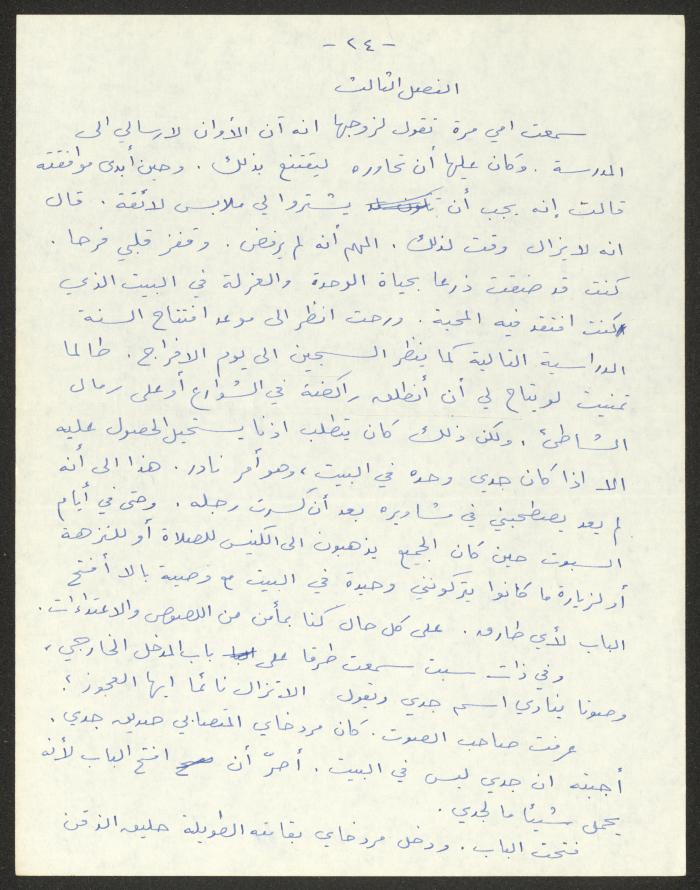 - ٢٤ -
الفصل الثالث
سمعت امي مرة تقول لزوجها انه آن الأوان لارسالي الى
المدرسة . وكان عليها أن تحاوره ليقتنع بذلك . وحين أبدى موافقته
قالت إنه يجب أن يشتروا لي ملابس لائقة . قال
انه لا يزال وقت لذلك . المهم أنه لم يرفض . وقفز قلبي فرحا .
كنت قد ضقت ذرعا بحياة الوحدة والعزلة في البيت الذي
كنت افتقد فيه المحبة . ورحت انظر الى موعد افتتاح السنة
الدراسية التالية كما ينظر السجين الى يوم الافراج . طالما
تمنيت لو يتاح لي أن أنطلق راكضة في الشوارع أو على رمال
الشاطئ . ولكن ذلك كان يتطلب اذنا يستحيل الحصول عليه
الا اذا كان جدي وحده في البيت ، وهو أمر نادر . هذا الى أنه
لم يعد يصطحبني في مشاويره بعد أن كسرت رجله . وحتى في أيام
السبوت حين كان الجميع يذهبون الى الكنيس للصلاة أو للنزهة
أو لزيارة ما كانوا يتركونني وحيدة في البيت مع وصية بالا أفتح
الباب لأي طارق . على كل حال كنا بمأمن من اللصوص والاعتداءات .
وفي ذات سبت سمعت طرقا على باب المدخل الخارجي ،
وصوتا ينادي اسم جدي ويقول الا تزال نائما ايها العجوز ؟
عرفت صاحب الصوت . كان مردخاي المتصابي صديق جدي .
أجبته ان جدي ليس في البيت . أصرّ أن افتح الباب لأنه
يحمل شيئا ما لجدي .
فتحت الباب . ودخل مردخاي بقامته الطويلة حليق الذقن